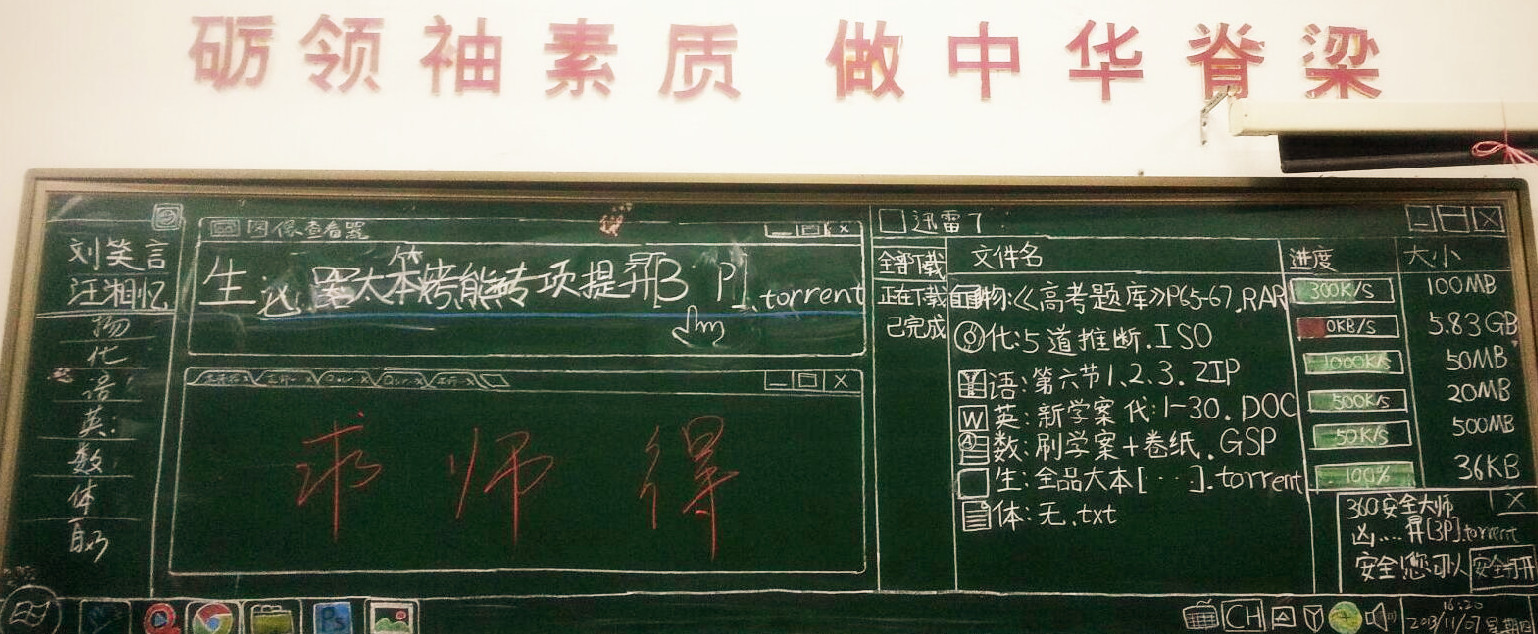 砺领袖素质 做中华脊梁
刘笑言
汪湘忆
物
化
语:
英:
数:
体
自习
图像查看器
X
生:
大本
能转项提升
.torrent
X
求师得
迅雷7
X
全部下载
正在下载
已完成
文件名 进度 大小
物:《高考题库》P65-67.RAR 300K/S 100MB
化:5道推断.ISO 0KB/S 5.83GB
语:第六节1.2.3.ZIP 1000K/S 50MB
W 英:新学案 代:1-30.DOC 500K/S 20MB
数:刷学案+卷纸.GSP 50K/S 500MB
生:全品大本[...].torrent 100% 36KB
体:无.txt
360安全大师 X
凶....昇[3P].torrent
安全!您可以 安全打开
Ps
CH
16:20
2013/11/07 星期四